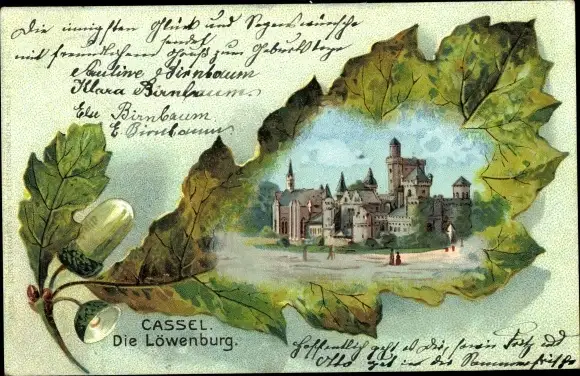 Die innigsten Glück und Segenswünsche
sendet
mit freundlichem Gruß zum Geburtstage
Pauline Birnbaum
Klara Birnbaum.
Else Birnbaum
E. Birnbaum
CASSEL.
Die Löwenburg.
Hoffentlich geht es Dir, sowie Fritz und
Otto gut in der Sommerfrische